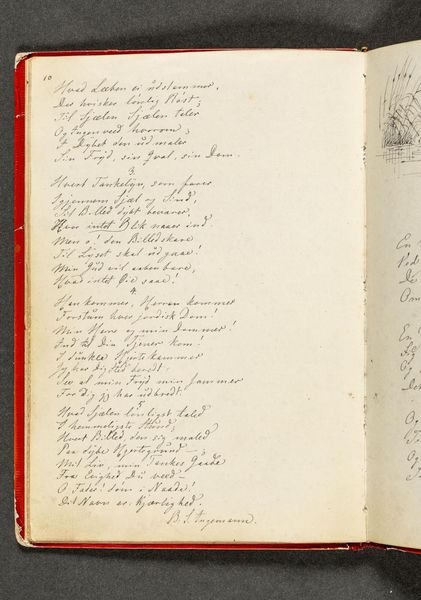 10
Hvad Læben ei udstammer,
Der hvisker lønlig Røst;
Til Sjælen Sjælen taler
Og Ingen veed hvorom;
I Dybet den ud maler
Sin Fryd, sin Qval, sin Dom.
3.
Hvert Tankelyn, som farer
Igjennem Sjæl og Sind,
Sit Billed dybt bevarer,
Hvor intet Blik naaer ind.
Men o! den Billedskare
Til Lyset skal udgaae!
Min Gud vil aabenbare,
Hvad intet Øie saae!
4.
Han kommer, Herren kommer
Forstum hver jordisk Dom!
Min Herre og min Dommer!
Ind til Din Tjener kom!
I dunkle Hjertekammer
Jeg har Dig Sted beredt;
See al min Fryd min Jammer
For Dig jeg har udbredt.
5.
Hvad Sjælen lønligst taled
I hemmeligste Stund;
Hvert Billed, den sig maled
Paa dybe Hjertegrund —;
Mit Liv, min Tankes Gaade
Fra Evighed Du veed —
O Fader! døm i Naade!
Dit Navn er: Kjærlighed.
B. S. Ingemann.
En
De
En
Og
Og